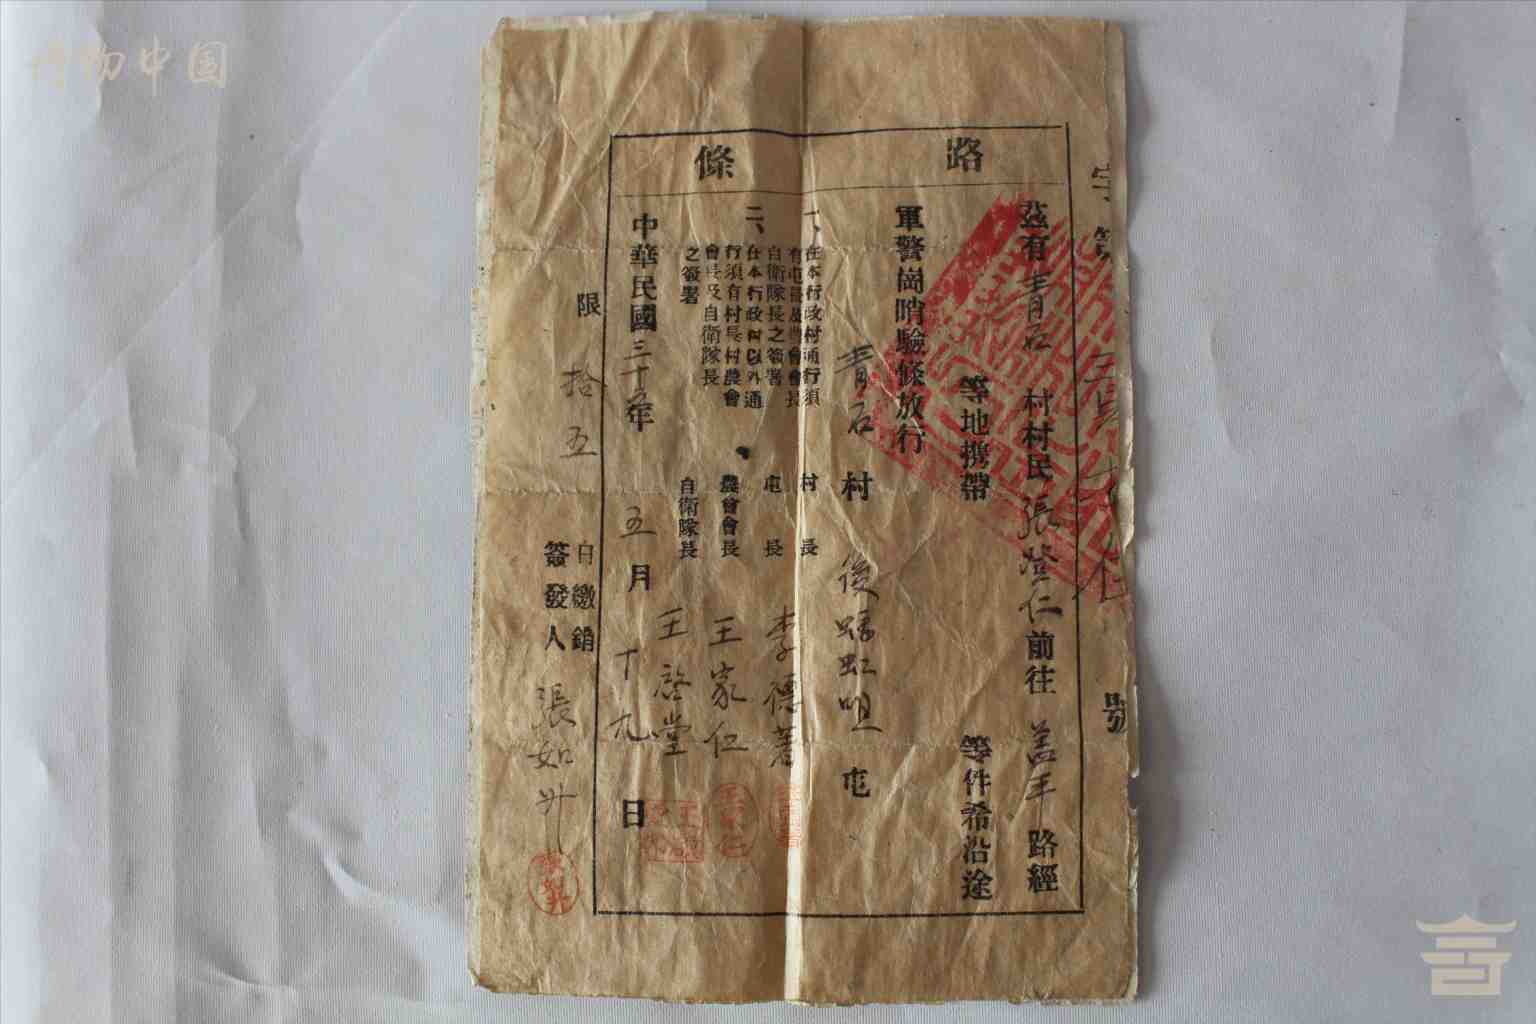 博物中国
路條
字第
號
茲有青石村村民張登仁前往蓋平路經
等地携帶
等件希沿途
軍警崗哨驗條放行
青石村後蟧虹咀屯
一、在本行政村通行須
有屯長及農會會長
自衛隊長之簽署
二、在本行政村以外通
行須有村長村農會
會長及自衛隊長
之簽署
村長
屯長 李德著
農會會長 王家仁
自衛隊長 王啓堂
中華民國三十五年五月十九日
限拾五日繳銷
簽發人 張如州